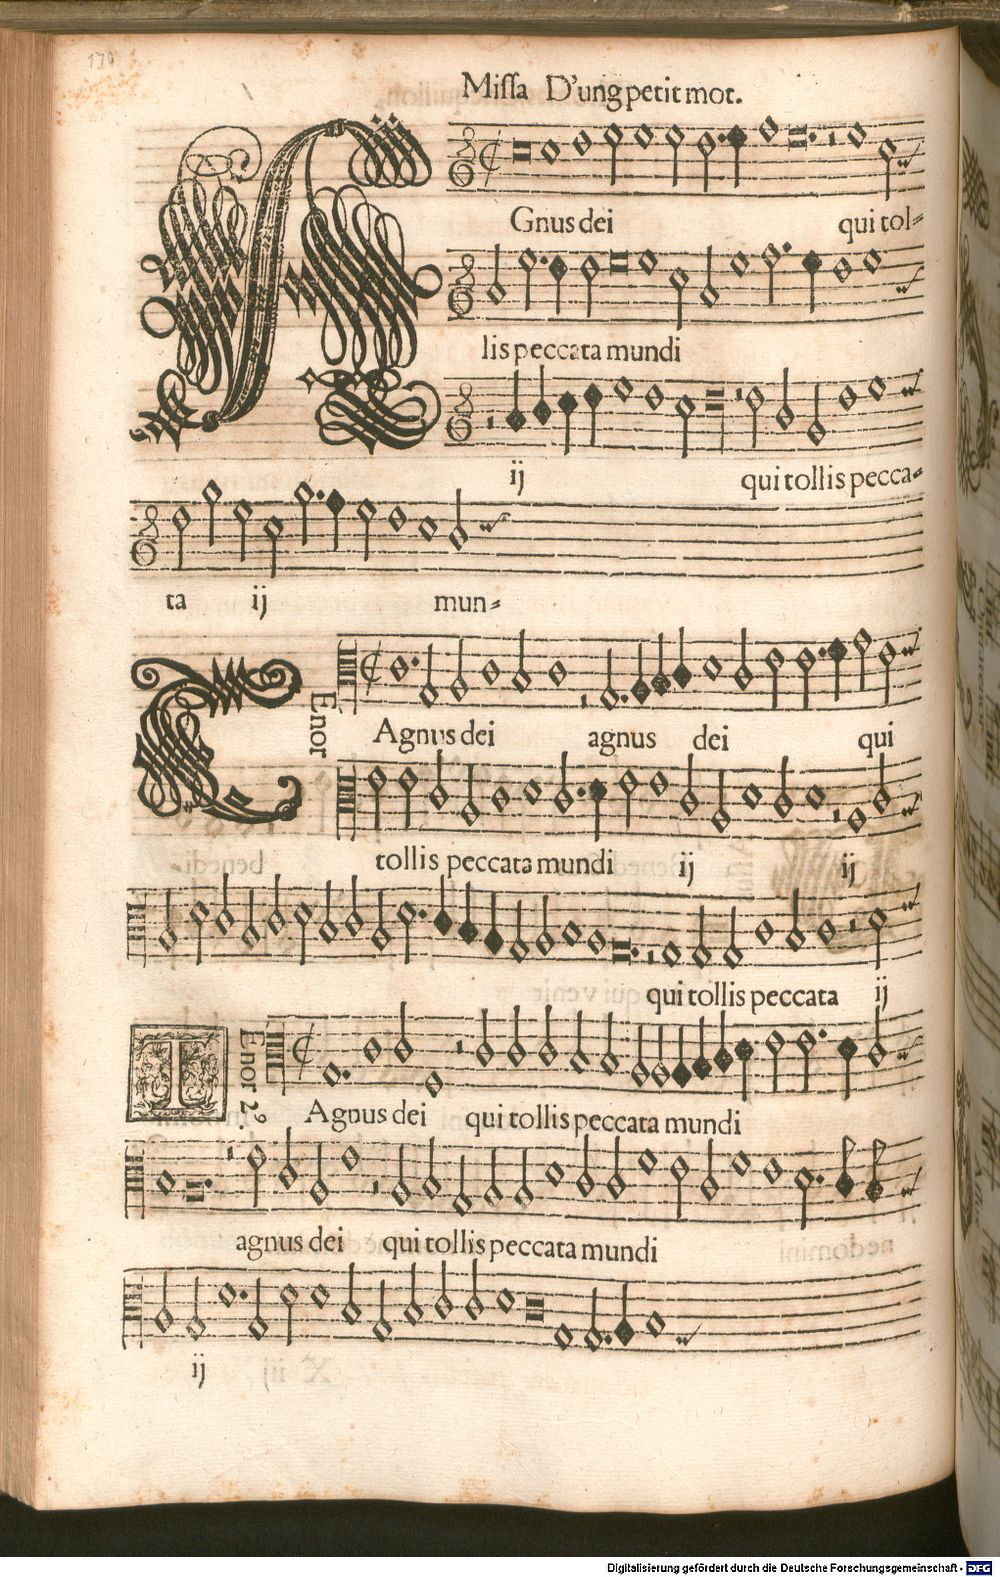 170
Missa D'ung petit mot.
A
Gnus dei qui tol-
lis peccata mundi
ij qui tollis pecca-
ta ij mun-
T
Enor
Agnus dei agnus dei qui
tollis peccata mundi ij ij
qui tollis peccata ij
T
Enor 2.
Agnus dei qui tollis peccata mundi
agnus dei qui tollis peccata mundi
ij
Digitalisierung gefördert durch die Deutsche Forschungsgemeinschaft - DFG